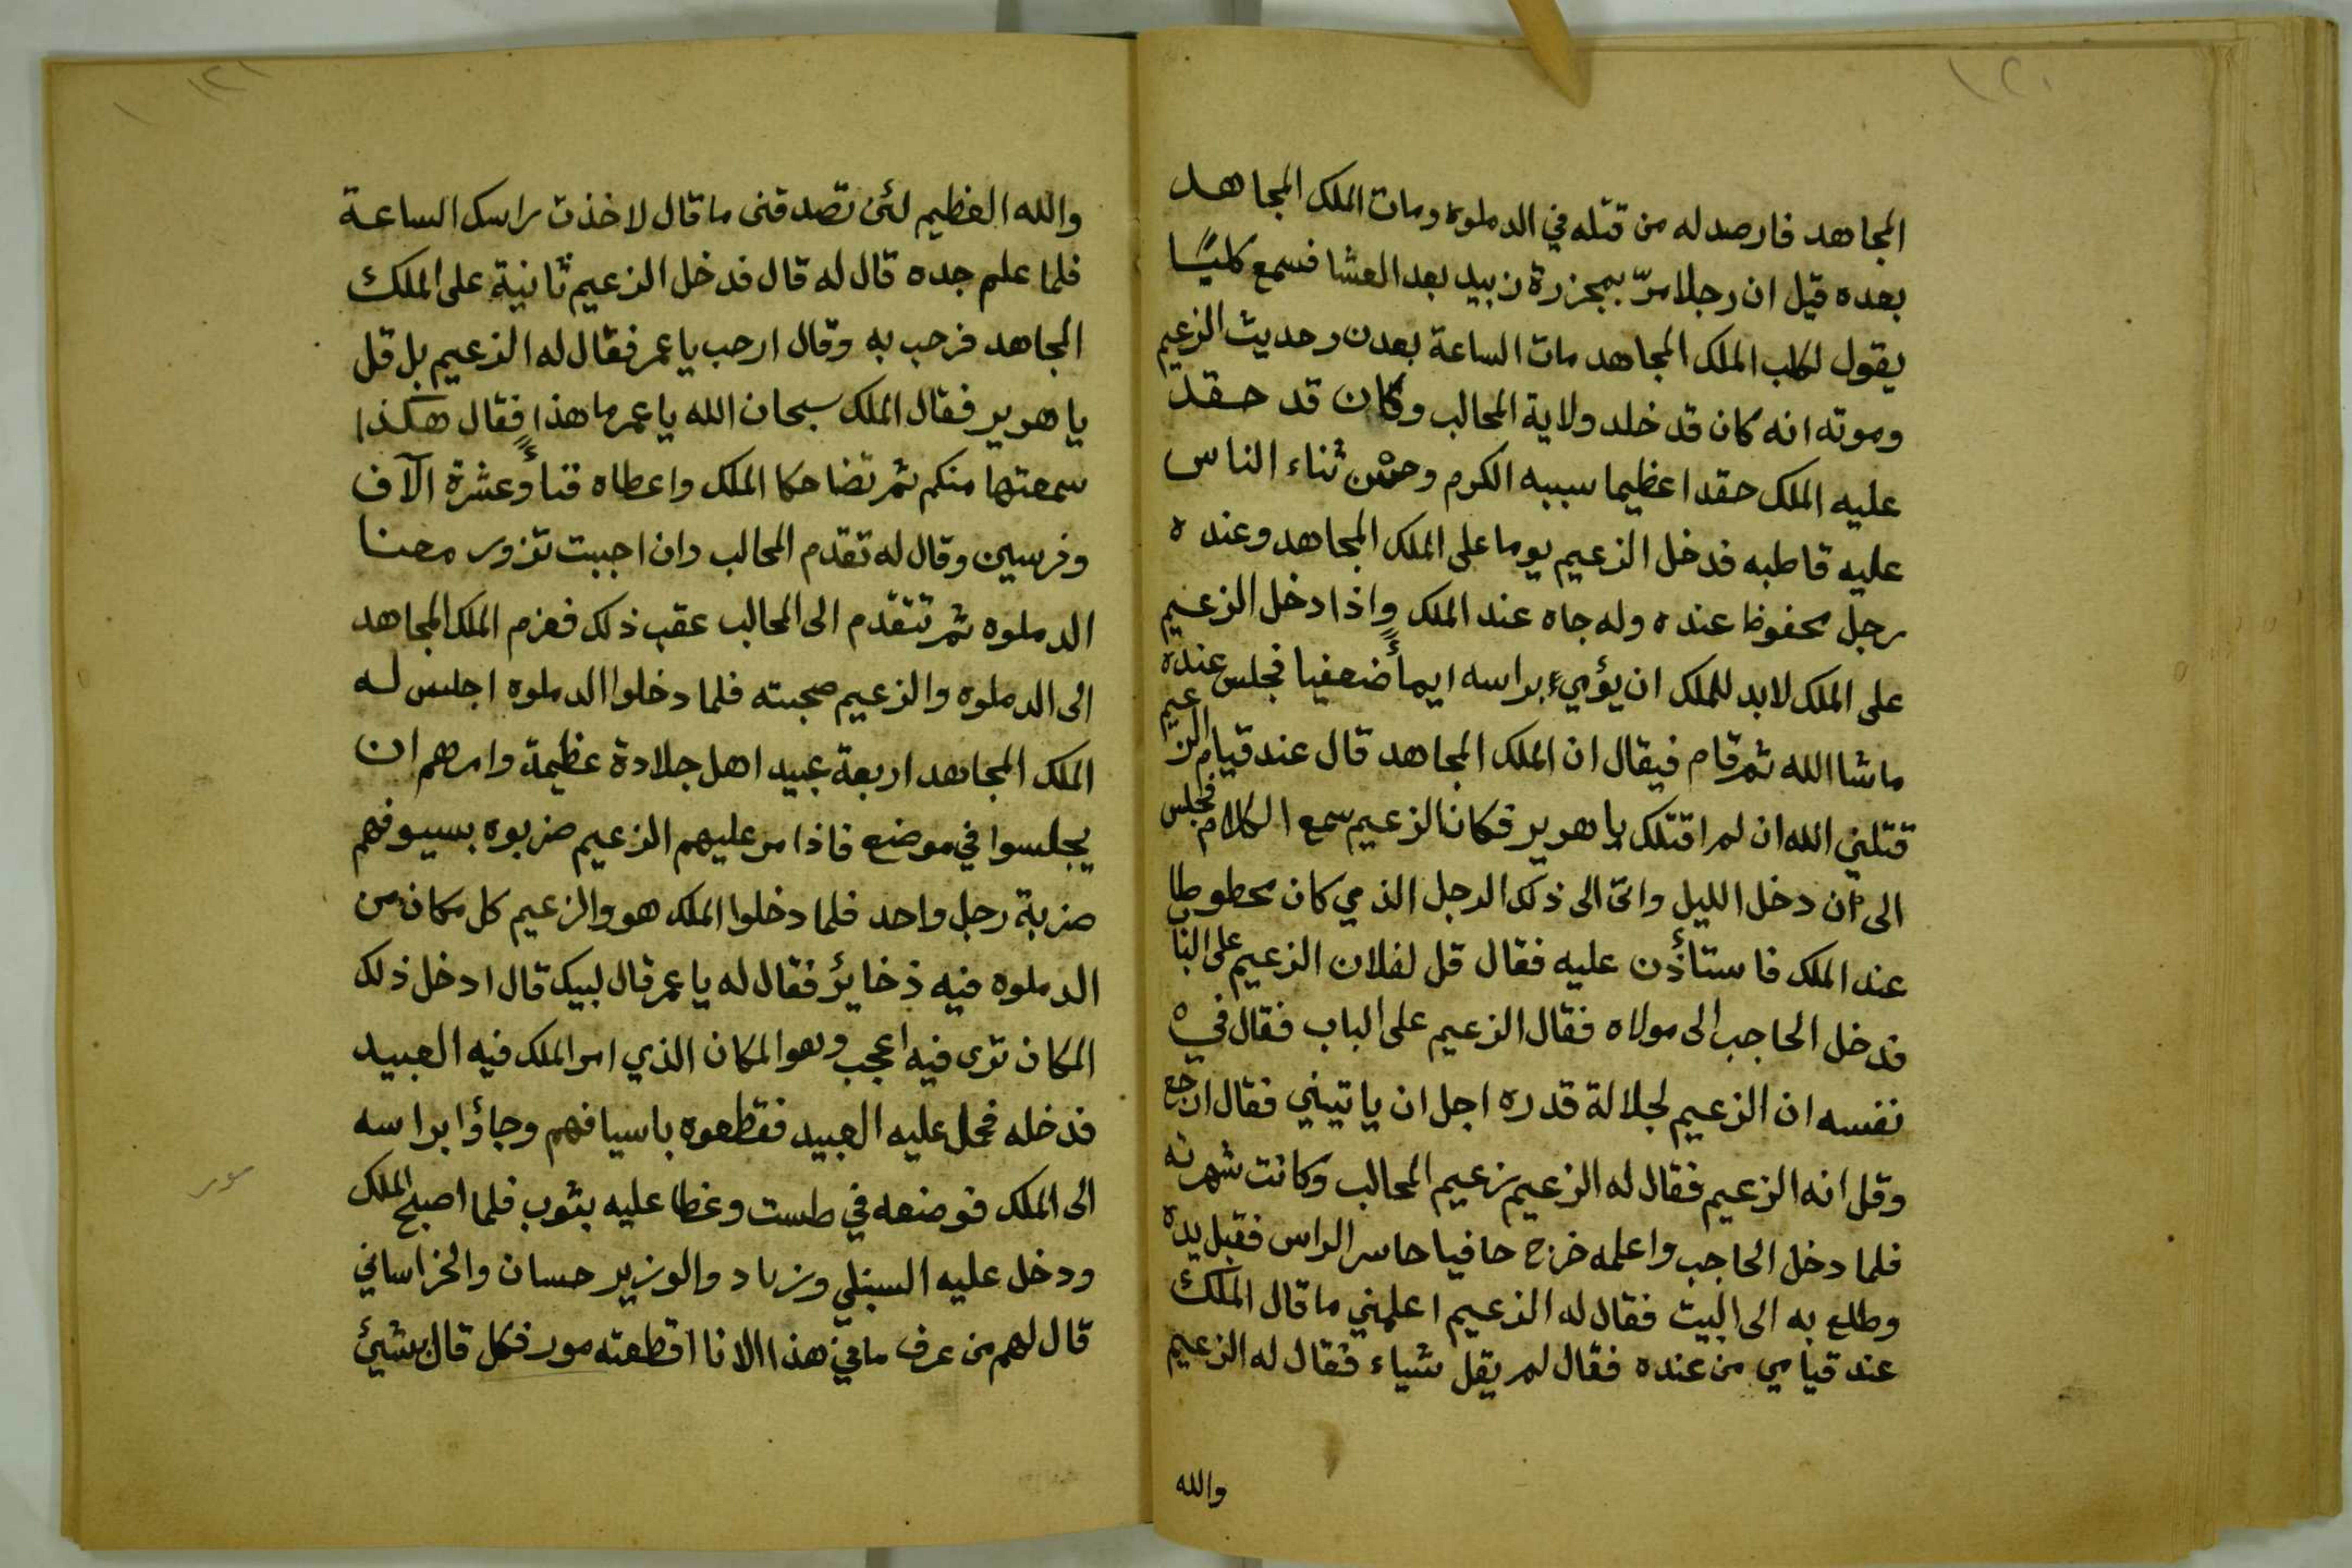 ١٢٠
المجاهد فارصد له من قتله في الدملوه ومات الملك المجاهد
بعده قيل ان رجلا مرّ بمجزرة زبيد بعد العشا فسمع كلبًا
يقول لكلب الملك المجاهد مات الساعة بعدن وحديث الزعيم
وموته انه كان قد خلد ولاية المحالب وكان قد حقد
عليه الملك حقدا عظيما سببه الكرم وحسن ثناء الناس
عليه قاطبه فدخل الزعيم يوما على الملك المجاهد وعنده
رجل محفوظ عنده وله جاه عند الملك واذا دخل الزعيم
على الملك لابد للملك ان يؤميء براسه ايمأ ضعفيا فجلس عنده
ماشا الله ثم قام فيقال ان الملك المجاهد قال عند قيام الزعيم
قتلني الله ان لم اقتلك يا هوير فكان الزعيم سمع الكلام فجلس
الى ان دخل الليل واتى الى ذلك الرجل الذي كان محطوطا
عند الملك فاستأذن عليه فقال قل لفلان الزعيم على الباب
فدخل الحاجب الى مولاه فقال الزعيم على الباب فقال في
نفسه ان الزعيم لجلالة قدره اجل ان ياتيني فقال ارجع
وقل انه الزعيم فقال له الزعيم زعيم المحالب وكانت شهرته
فلما دخل الحاجب واعلمه خرج حافيا حاسر الراس فقبل يده
وطلع به الى البيت فقال له الزعيم اعلمني ما قال الملك
عند قيامي من عنده فقال لم يقل شياء فقال له الزعيم
والله
١٢١
والله العظيم لئن تصدقنى ما قال لاخذت راسك الساعة
فلما علم جده قال له قال فدخل الزعيم ثانية على الملك
المجاهد فرحب به وقال ارحب يا عمر فقال له الزعيم بل قل
يا هوير فقال الملك سبحان الله يا عمر ما هذا فقال هكذا
سمعتها منكم ثم تضاحكا الملك واعطاه قنأ وعشرة آلاف
وفرسين وقال له تقدم المحالب وان احببت تزور معنا
الدملوه ثم تتقدم الى المحالب عقب ذلك فعزم الملك المجاهد
الى الدملوه والزعيم صحبته فلما دخلوا الدملوه اجلس له
الملك المجاهد اربعة عبيد اهل جلادة عظيمة وامرهم ان
يجلسوا في موضع فاذا مر عليهم الزعيم ضربوه بسيوفهم
ضربة رجل واحد فلما دخلوا الملك هو والزعيم كل مكان من
الدملوه فيه ذخائر فقال له يا عمر قال لبيك قال ادخل ذلك
المكان ترى فيه اعجب وهو المكان الذي امر الملك فيه العبيد
فدخله فحمل عليه العبيد فقطعوه باسيافهم وجاؤا براسه
الى الملك فوضعه في طست وغطا عليه بثوب فلما اصبح الملك
ودخل عليه السنبلي وزياد والوزير حسان والخراساني
قال لهم من عرف ما في هذا الانا اقطعته مور فكل قال بشيئ
مور